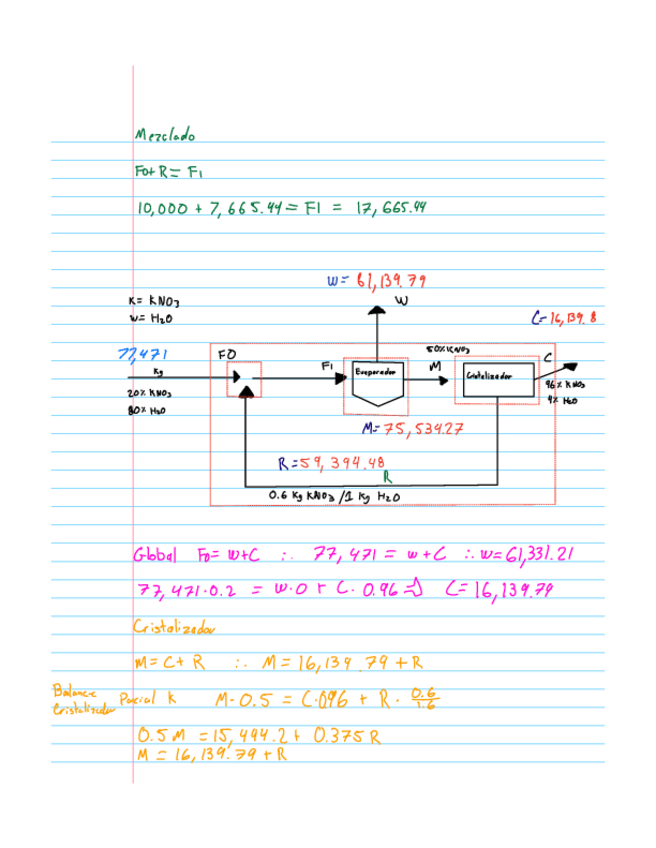 Mezclado
Fo+ R = F1
10,000 + 7,665.44 = F1 = 17,665.44
W= 61,139.79
K= KNO3
W= H2O
W
C= 16,139.8
77,471
Kg
20% KNO3
80% H2O
FO
F1
Evaporador
50% KNO3
M
Cristalizador
C
96% KNO3
4% H2O
M= 75,534.27
R= 59,394.48
R
0.6 Kg KNO3 /1 Kg H2O
Global Fo= W+C ∴ 77,471 = W+C ∴ W= 61,331.21
77,471·0.2 = W·0 + C·0.96 ⇒ C= 16,139.79
Cristalizador
M= C+ R ∴ M= 16,139.79 + R
Balance Parcial K M·0.5 = C·096 + R· 0.6/1.6
Cristalizador
0.5M = 15,494.2 + 0.375R
M = 16,139.79 + R